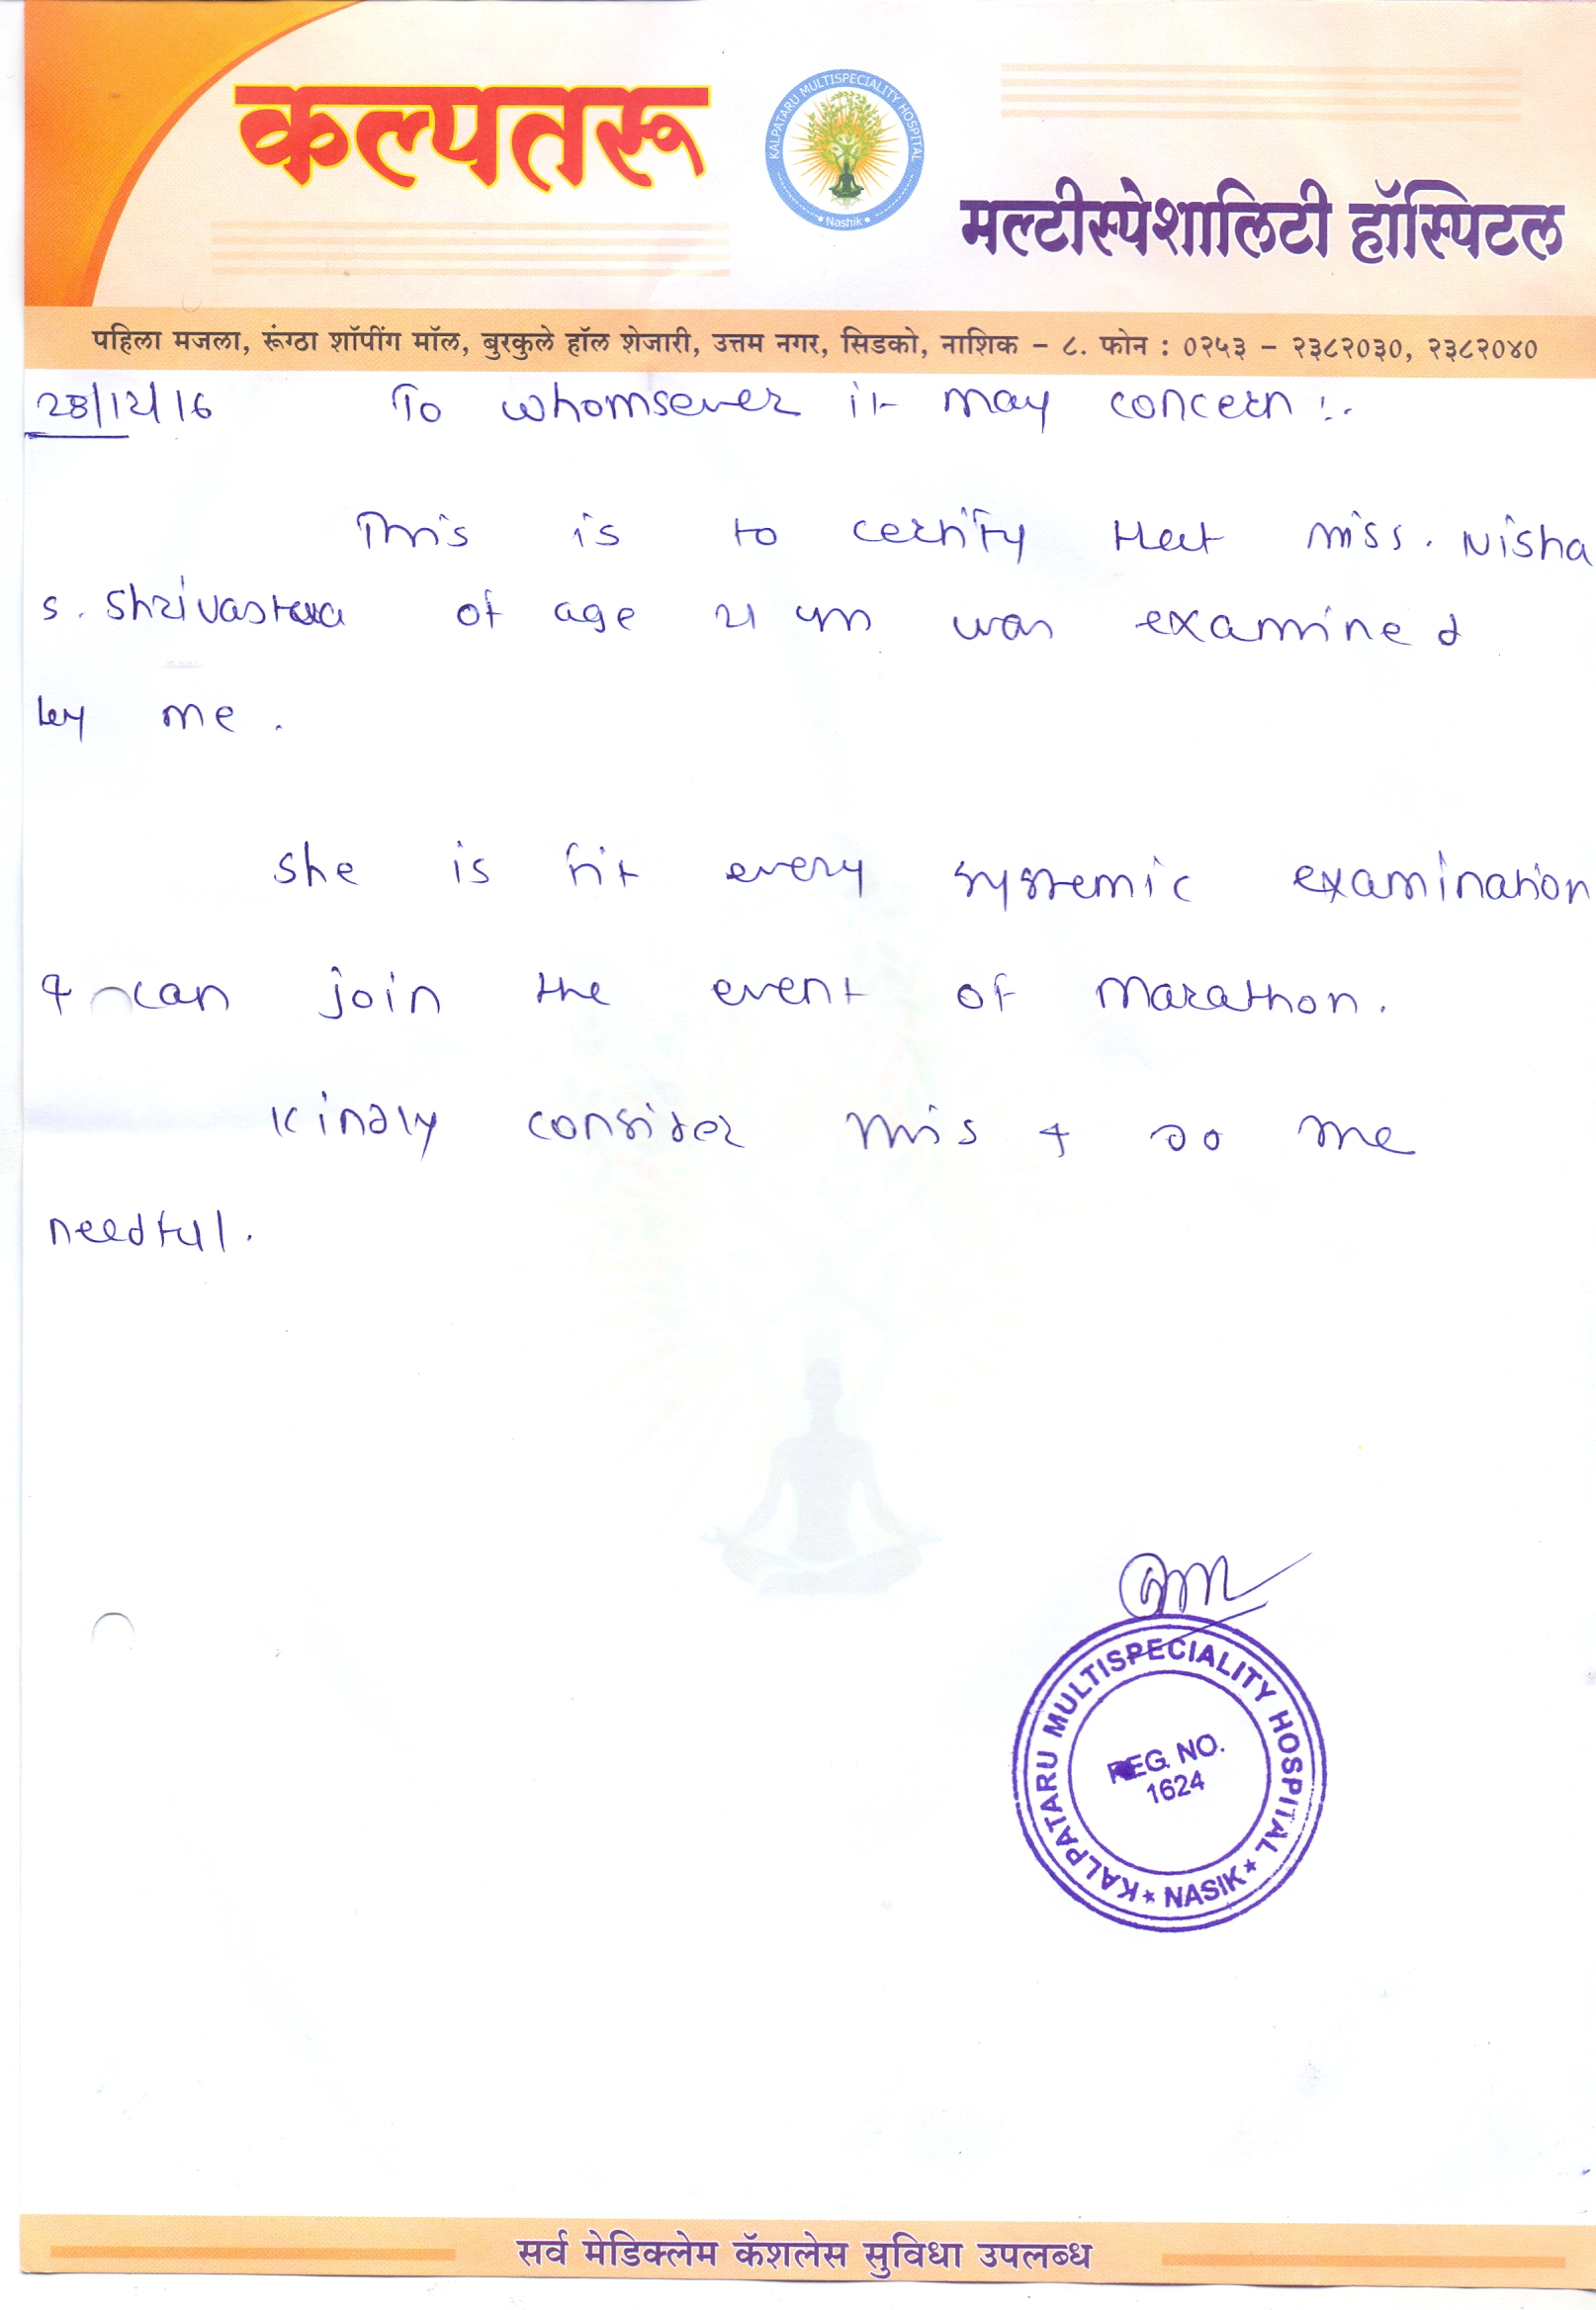 कल्पतरू
KALPATARU MULTISPECIALITY HOSPITAL
Nashik
मल्टीस्पेशालिटी हॉस्पिटल
पहिला मजला, रूंग्ठा शॉपींग मॉल, बुरकुले हॉल शेजारी, उत्तम नगर, सिडको, नाशिक - ८. फोन : ०२५३ - २३८२०३०, २३८२०४०
28/12/16 To whomsever it may concern :-
This is to certify that miss. Nisha
s. Shrivastava of age 21 yrs was examined
by me.
She is fit every systemic examination
& can join the event of Marathon.
Kindly consider this & do the
needful.
KALPATARU MULTISPECIALITY HOSPITAL
★ NASIK ★
REG. NO.
1624
सर्व मेडिक्लेम कॅशलेस सुविधा उपलब्ध